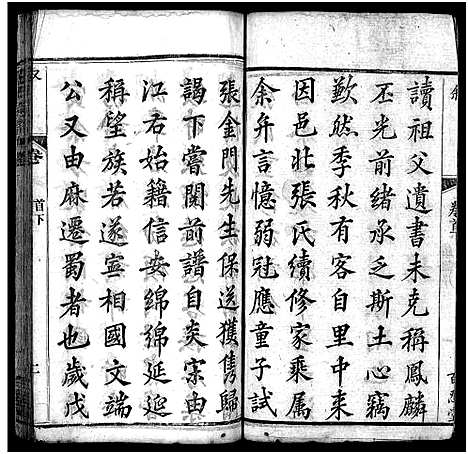 讀祖父遺書未克稱鳳麟
丕光前緒承乏斯土心竊
歉然季秋有客自里中来
因邑北張氏續修家乘属
余弁言憶弱冠應童子試
張金門先生保送獲雋歸
謁下嘗閱前譜自炎宗由
江右始籍信安綿綿延延
稱望族若遂寧相國文端
公又由麻遷蜀者也歲戊
卷
首下